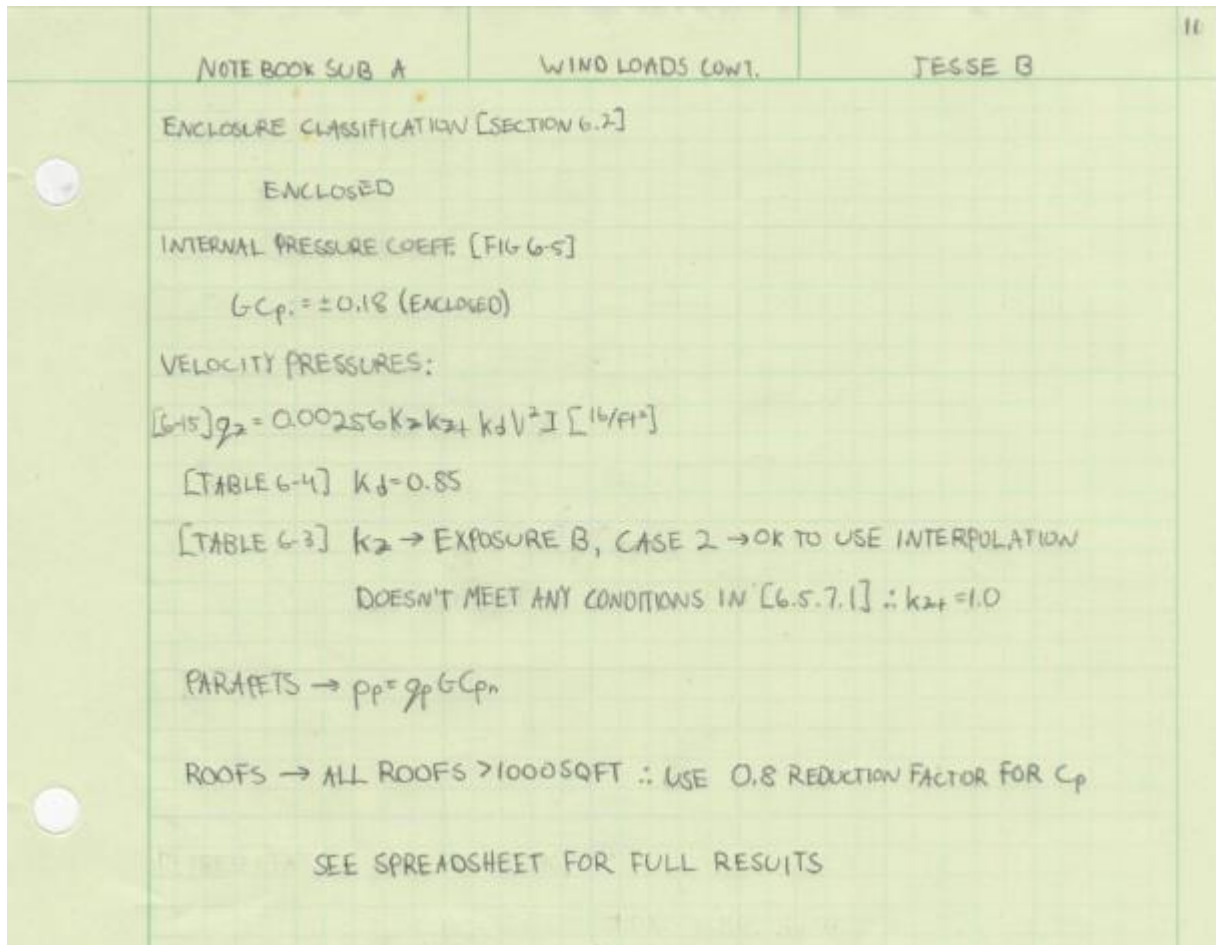 11
NOTEBOOK SUB A WIND LOADS CONT. JESSE B
ENCLOSURE CLASSIFICATION [SECTION 6.2]
ENCLOSED
INTERNAL PRESSURE COEFF. [FIG 6-5]
GCpi = ±0.18 (ENCLOSED)
VELOCITY PRESSURES:
[6-15] qz = 0.00256 Kz Kzt Kd V² I [lb/ft²]
[TABLE 6-4] Kd = 0.85
[TABLE 6-3] Kz → EXPOSURE B, CASE 2 → OK TO USE INTERPOLATION
DOESN'T MEET ANY CONDITIONS IN [6.5.7.1] ∴ Kzt = 1.0
PARAPETS → Pp = qp GCpn
ROOFS → ALL ROOFS > 1000 SQFT ∴ USE 0.8 REDUCTION FACTOR FOR Cp
SEE SPREADSHEET FOR FULL RESULTS